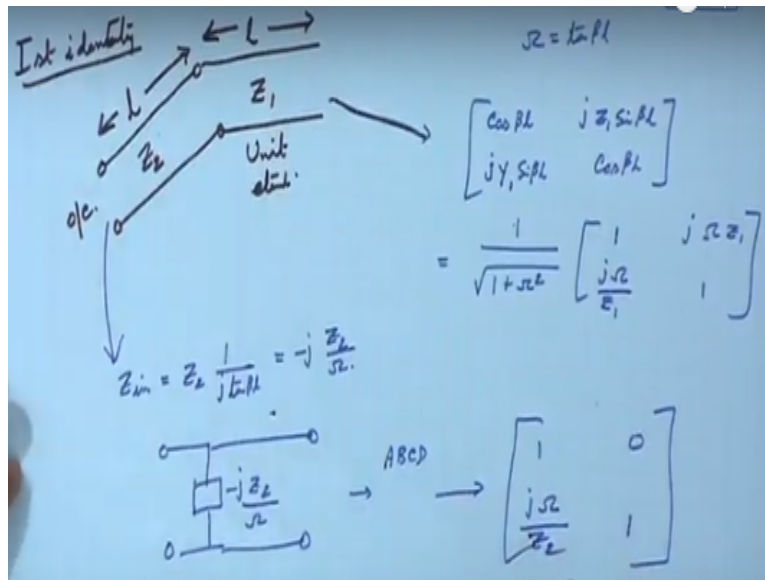 Ist identity
← l →
Ω = tan βl
← l →
Z1
Z2
Unit
o/c.
[ Cos βl    j Z1 Sin βl ]
[ j Y1 Sin βl    Cos βl ]
= 1/√(1+Ω²) [ 1    j Ω Z1 ]
[ jΩ/Z1    1 ]
Zin = Z2 1/(j tan βl) = -j Z2/Ω.
-j Z2/Ω → ABCD → [ 1    0 ]
[ jΩ/Z2    1 ]